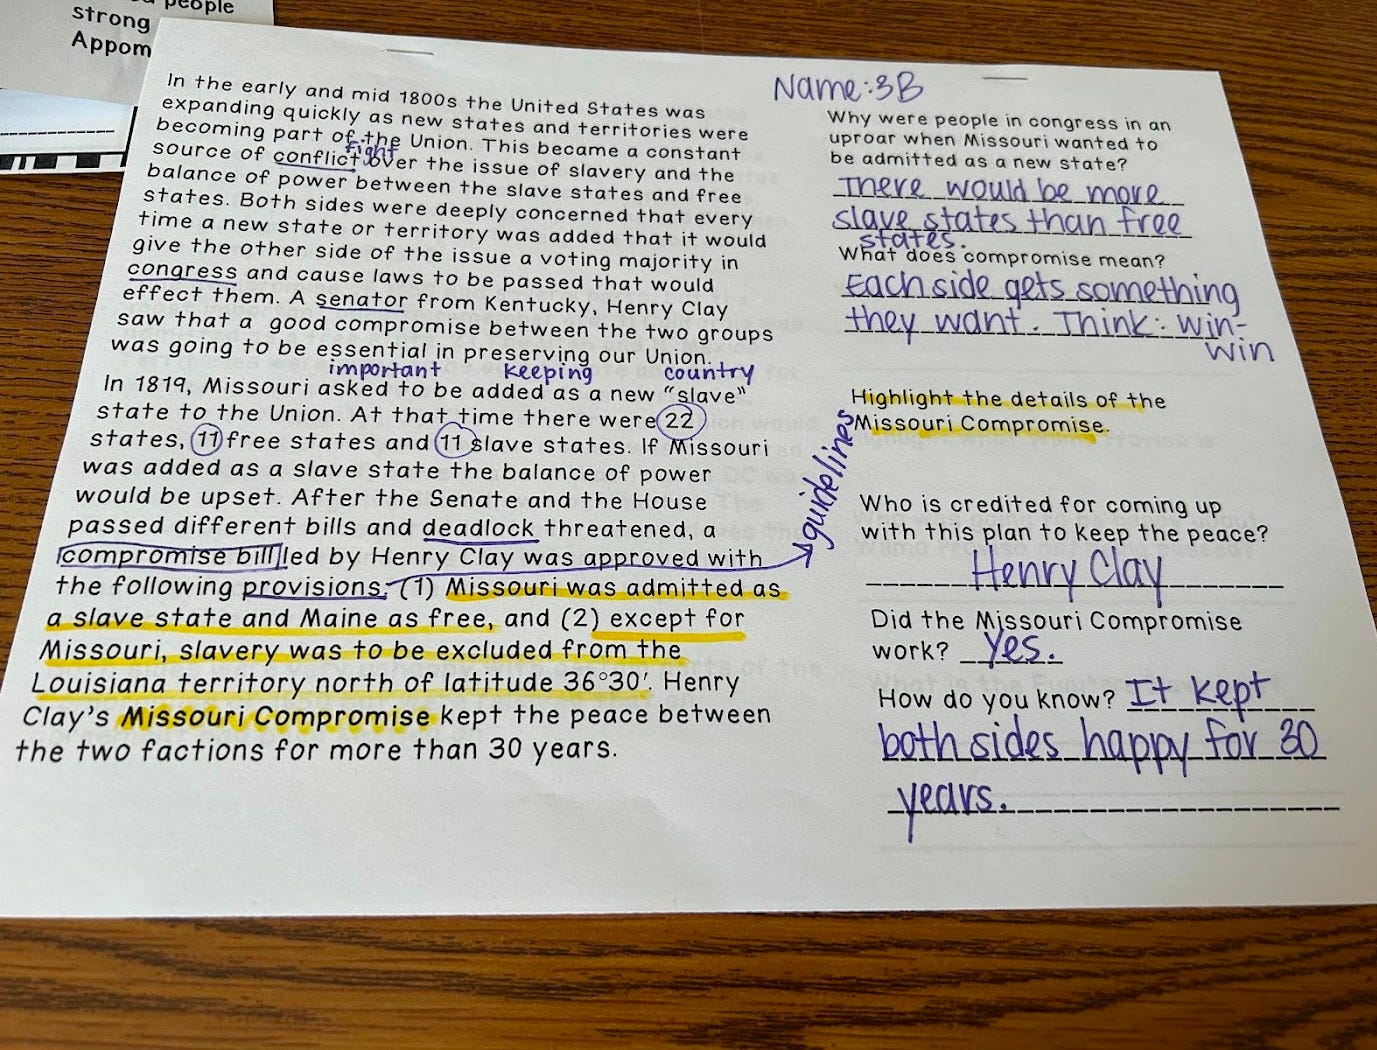 people
strong
Appom
In the early and mid 1800s the United States was
expanding quickly as new states and territories were
becoming part of the Union. This became a constant
fight
source of conflict over the issue of slavery and the
balance of power between the slave states and free
states. Both sides were deeply concerned that every
time a new state or territory was added that it would
give the other side of the issue a voting majority in
congress and cause laws to be passed that would
effect them. A senator from Kentucky, Henry Clay
saw that a good compromise between the two groups
was going to be essential in preserving our Union.
important keeping country
In 1819, Missouri asked to be added as a new "slave"
state to the Union. At that time there were 22
states, 11 free states and 11 slave states. If Missouri
was added as a slave state the balance of power
would be upset. After the Senate and the House
passed different bills and deadlock threatened, a
compromise bill led by Henry Clay was approved with
the following provisions: (1) Missouri was admitted as
a slave state and Maine as free, and (2) except for
Missouri, slavery was to be excluded from the
Louisiana territory north of latitude 36°30′. Henry
Clay's Missouri Compromise kept the peace between
the two factions for more than 30 years.
guidelines
Name: 3B
Why were people in congress in an
uproar when Missouri wanted to
be admitted as a new state?
There would be more
slave states than free
states.
What does compromise mean?
Each side gets something
they want. Think: win-
win
Highlight the details of the
Missouri Compromise.
Who is credited for coming up
with this plan to keep the peace?
Henry Clay
Did the Missouri Compromise
work? Yes.
How do you know? It kept
both sides happy for 30
years.